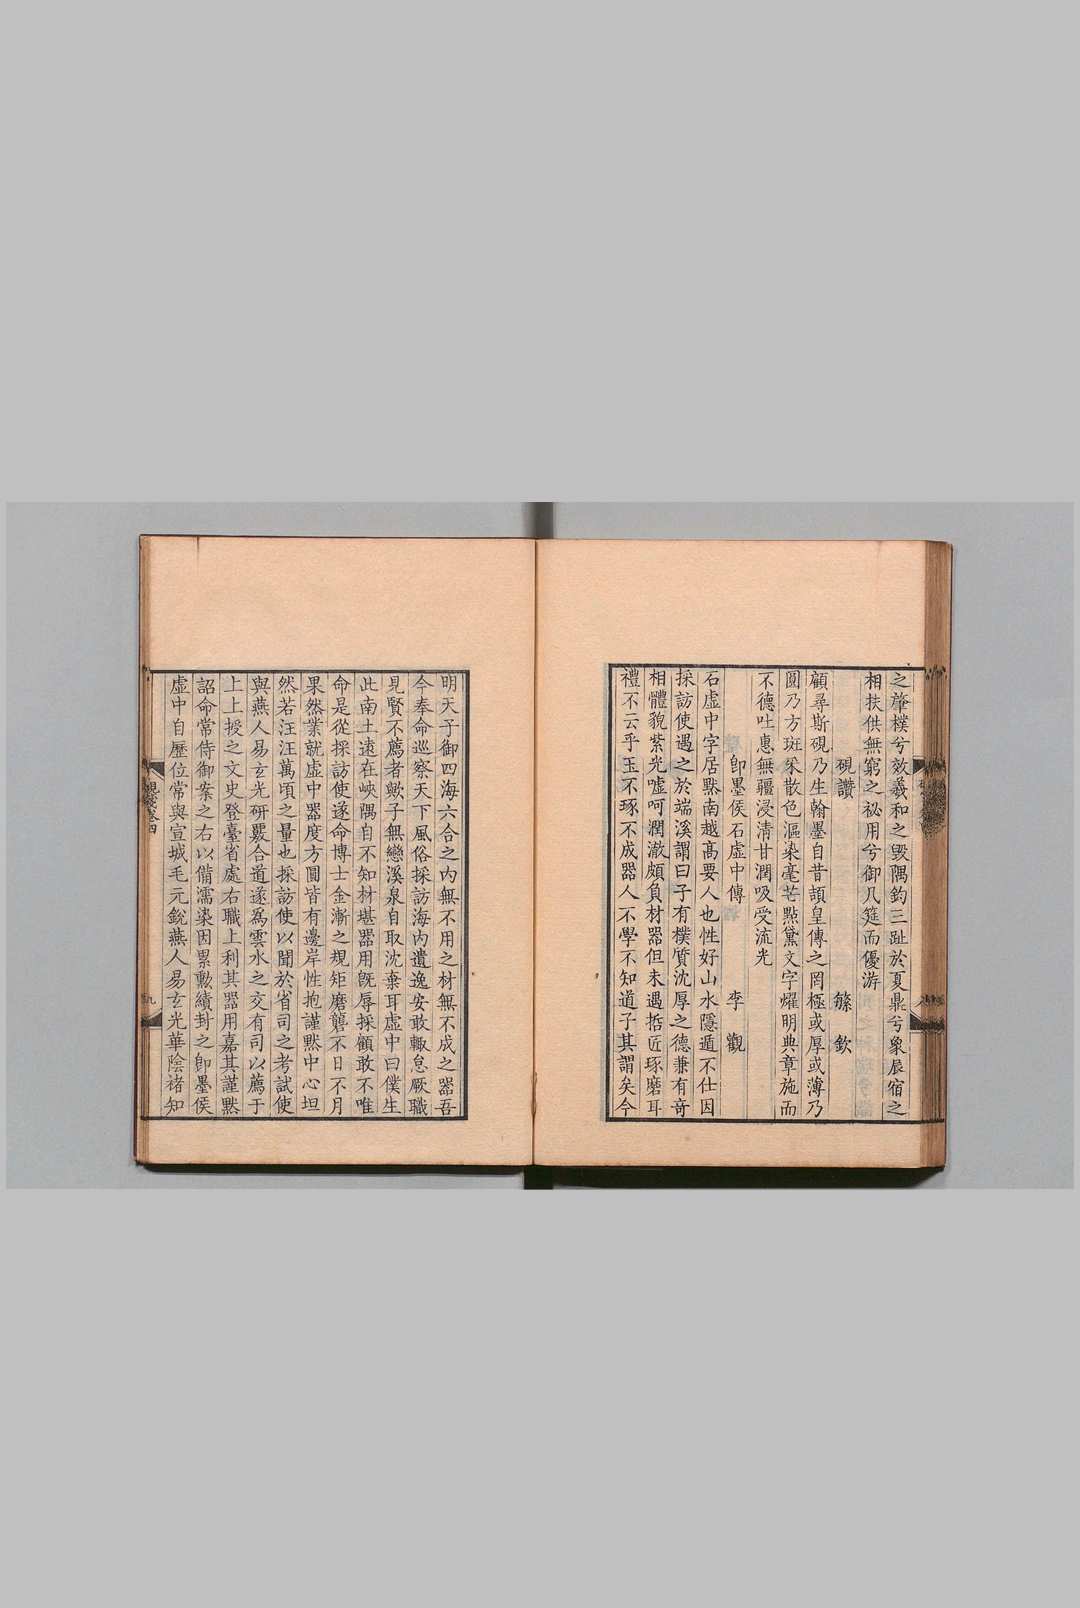 之肇樸兮效羲和之毀隅鈞三趾於夏鼎兮象辰宿之
相扶供無窮之祕用兮御几筵而優游
硯讚 繇欽
顧尋斯硯乃生翰墨自昔頡皇傳之罔極或厚或薄乃
圓乃方班采散色漚染毫芒點黛文字燿明典章施而
不德吐惠無疆浸清甘潤吸受流光
卽墨侯石虛中傳 李觀
石虛中字居默南越高要人也性好山水隱遁不仕因
採訪使遇之於端溪謂曰子有樸質沈厚之德兼有奇
相體貌紫光噓呵潤澈頗負材器但未遇哲匠琢磨耳
禮不云乎玉不琢不成器人不學不知道子其謂矣今
明天子御四海六合之內無不用之材無不成之器吾
今奉命巡察天下風俗採訪海內遺逸安敢輙怠厥職
見賢不薦者歟子無戀溪泉自取沈棄耳虛中曰僕生
此南土遠在峽隅自不知材堪器用旣辱採顧敢不唯
命是從採訪使遂命博士金漸之規矩磨礱不日不月
果然業就虛中器度方圓皆有邊岸性抱謹默中心坦
然若汪汪萬頃之量也採訪使以聞於省司之考試使
與燕人易玄光研覈合道遂爲雲水之交有司以薦于
上上授之文史登臺省處右職上利其器用嘉其謹默
詔命常侍御案之右以備濡染因累勳績封之卽墨侯
虛中自歷位常與宣城毛元銳燕人易玄光華陰褚知
硯箋卷四
九